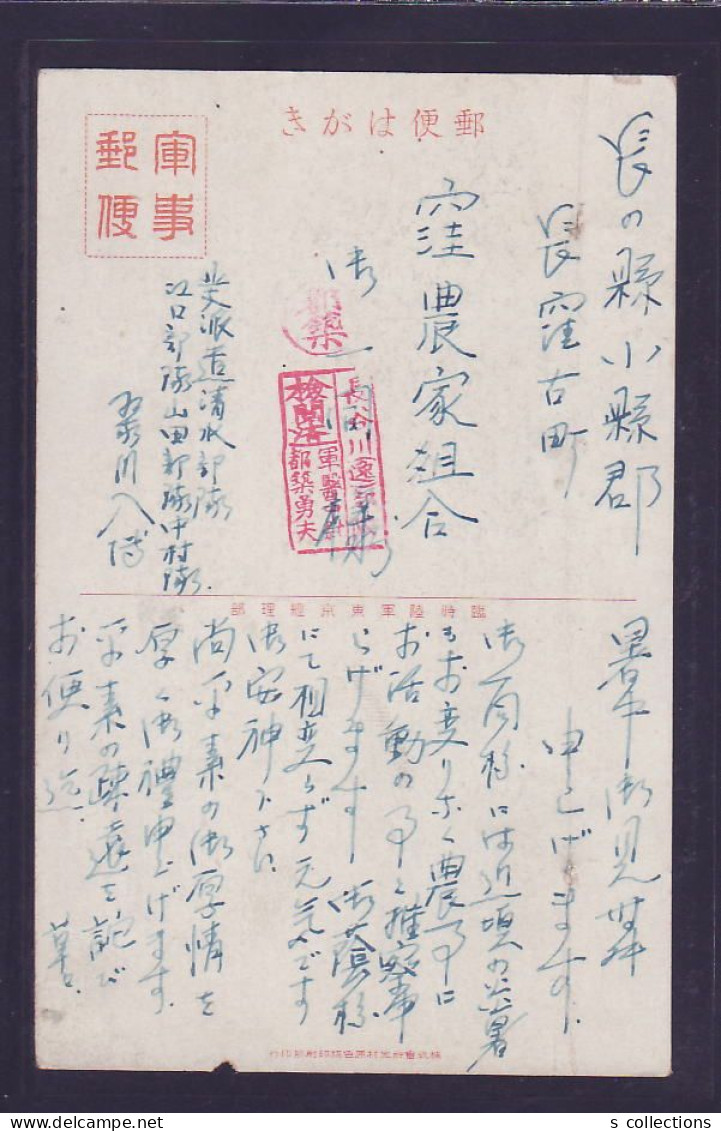 郵便はがき
軍事
郵便
長の縣小縣郡
長窪古町
窪農家組合
御一同様
都築
檢閲済
長谷川
軍醫
都築勇夫
北支派遣清水部隊
江口部隊山田部隊中村隊
臨時陸軍東京經理部
暑中御見舞
申上げます
御一同様には近頃の炎暑
もお変りなく農事に
お活動の事と推察申
上げます 御蔭様
にて相変らず元気です
御安神下さい
尚平素の御厚情を
厚く御禮申上げます
平素の疎遠を詑び
お便り迄 草々
s collections